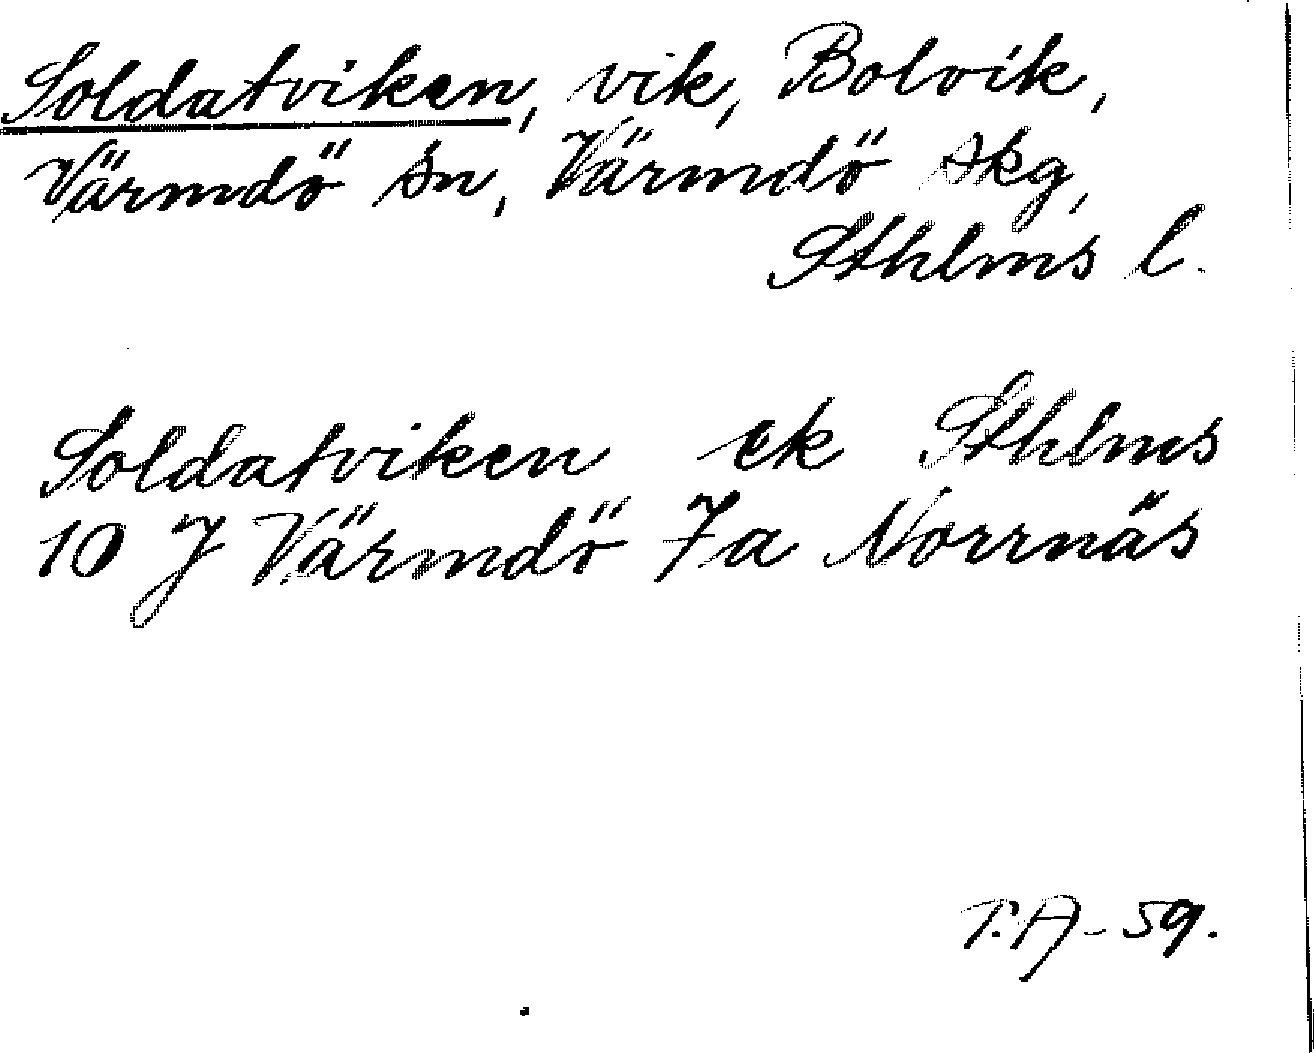 Soldatviken, vik, Bolvik,
Värmdö sn, Värmdö skg,
Sthlms l.
Soldatviken ek Sthlms
10 J Värmdö 7a Norrnäs
T.A-59.